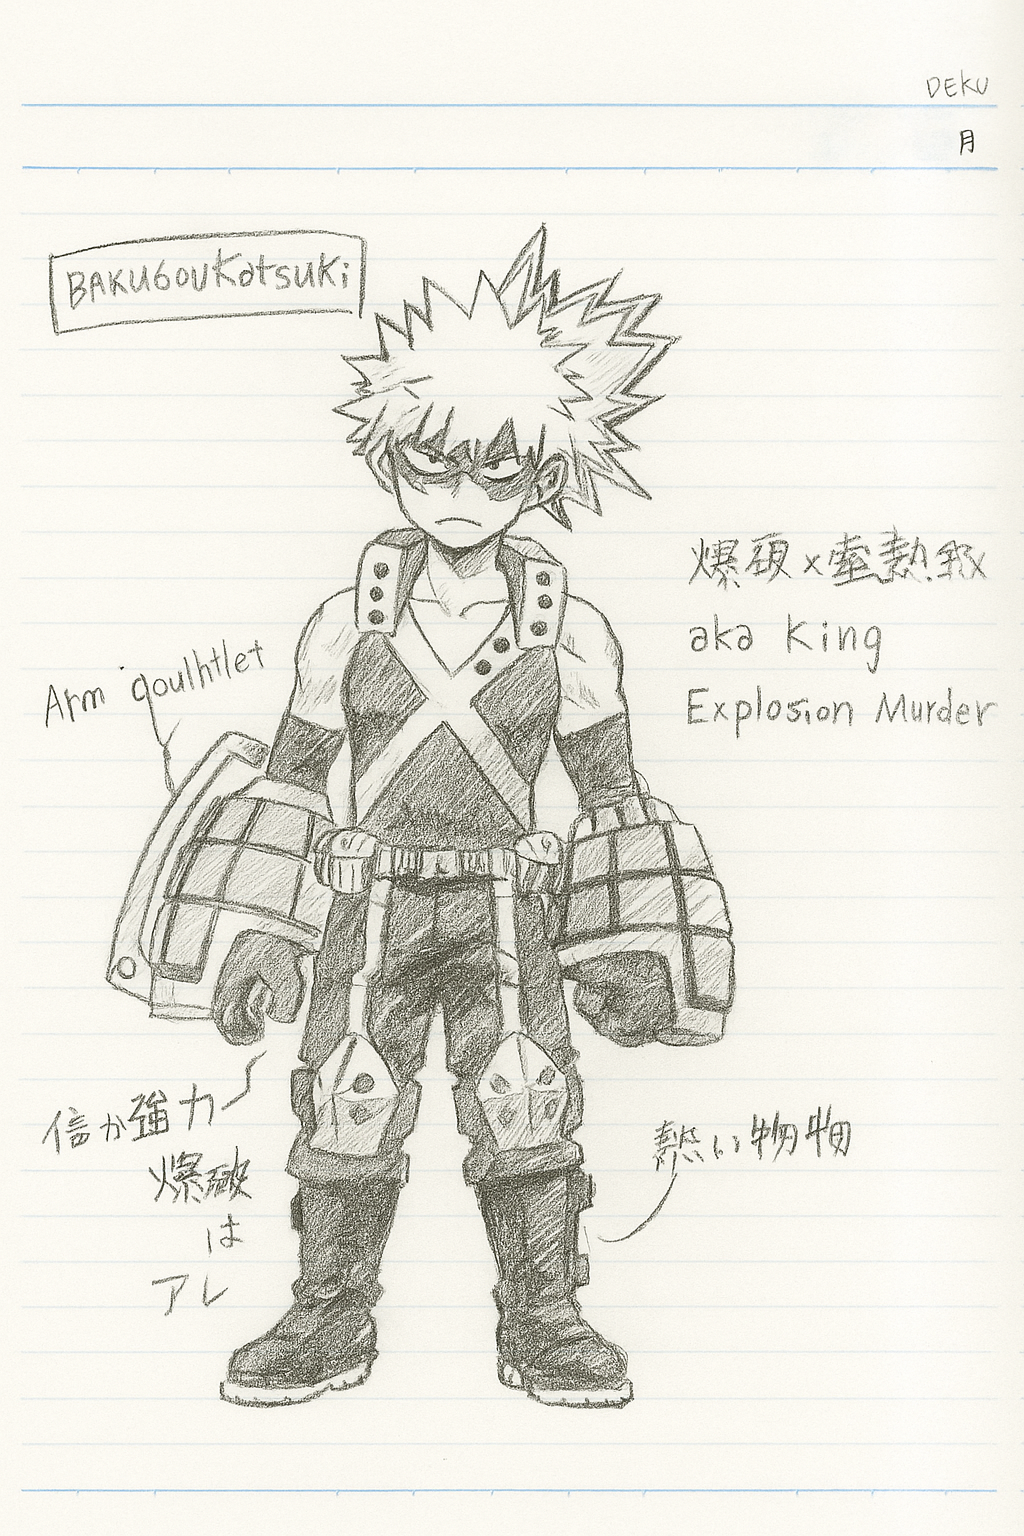 DEKU
月
BAKUGOUKatsuki
爆 x
aka King
Explosion Murder
Arm goulhtlet
信か強力
爆破
は
アレ
熱い物物